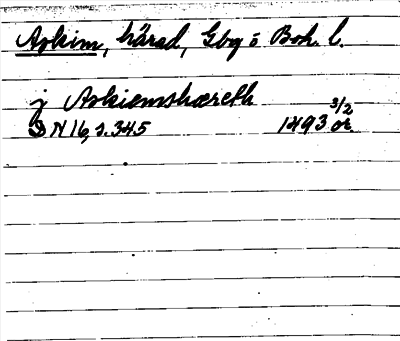 Askim, härad, Gbg o Boh. l.
j Askiemshæreth
D N 16, s. 345 1493 3/2 or.